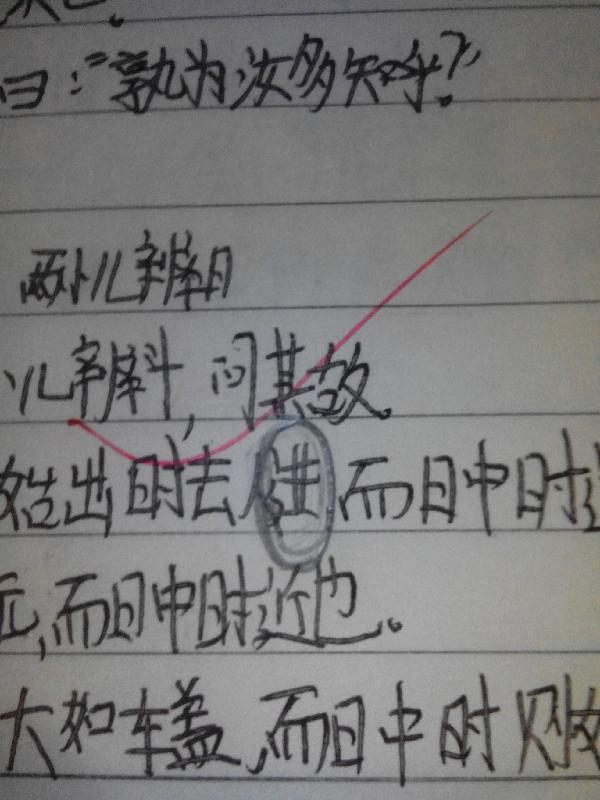 曰:“孰为汝多知乎?”
两小儿辩日
儿辩斗,问其故。
始出时去人进而日中时
而日中时近也。
大如车盖,而日中时则